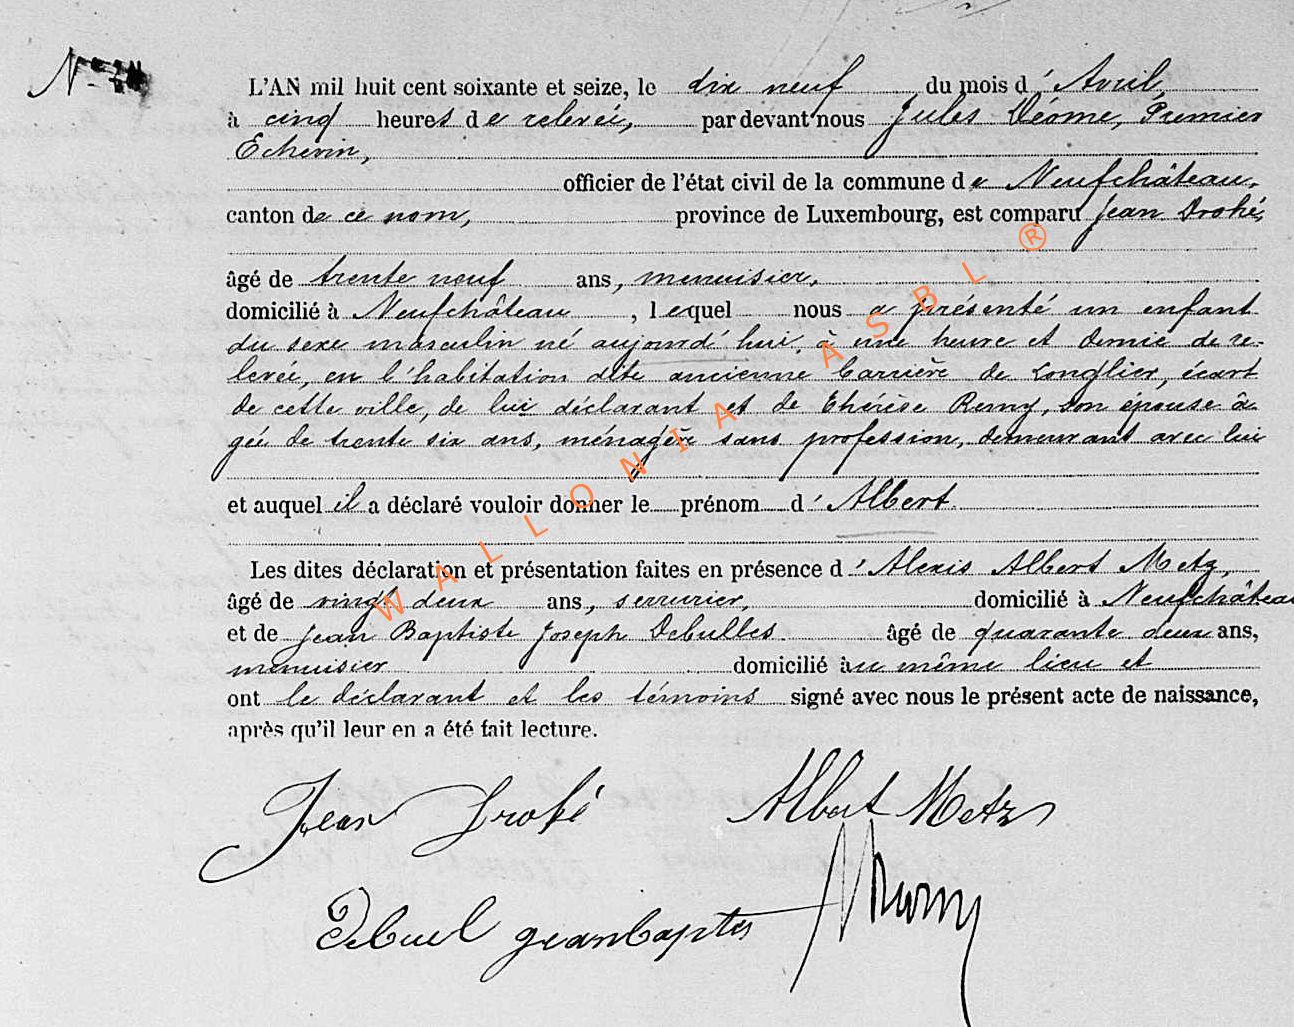 N°
L'AN mil huit cent soixante et seize, le dix neuf du mois d'Avril,
à cinq heures de relevée, par devant nous Jules Déome, Premier
Echevin,
officier de l'état civil de la commune de Neufchâteau,
canton de ce nom, province de Luxembourg, est comparu Jean Droké,
âgé de trente neuf ans, menuisier,
domicilié à Neufchâteau, lequel nous a présenté un enfant
du sexe masculin né aujourd'hui, à une heure et demie de re-
levée, en l'habitation dite ancienne barrière de Longlier, écart
de cette ville, de lui déclarant et de Thérèse Remy, son épouse â-
gée de trente six ans, ménagère sans profession, demeurant avec lui
et auquel il a déclaré vouloir donner le prénom d'Albert.
Les dites déclaration et présentation faites en présence d'Alexis Albert Metz,
âgé de vingt deux ans, serrurier, domicilié à Neufchâteau
et de Jean Baptiste Joseph Debulles âgé de quarante deux ans,
menuisier domicilié au même lieu et
ont le déclarant et les témoins signé avec nous le présent acte de naissance,
après qu'il leur en a été fait lecture.
Jean Droké Albert Metz
Debuel jeanbaptis
WALLONIA ASBL ®